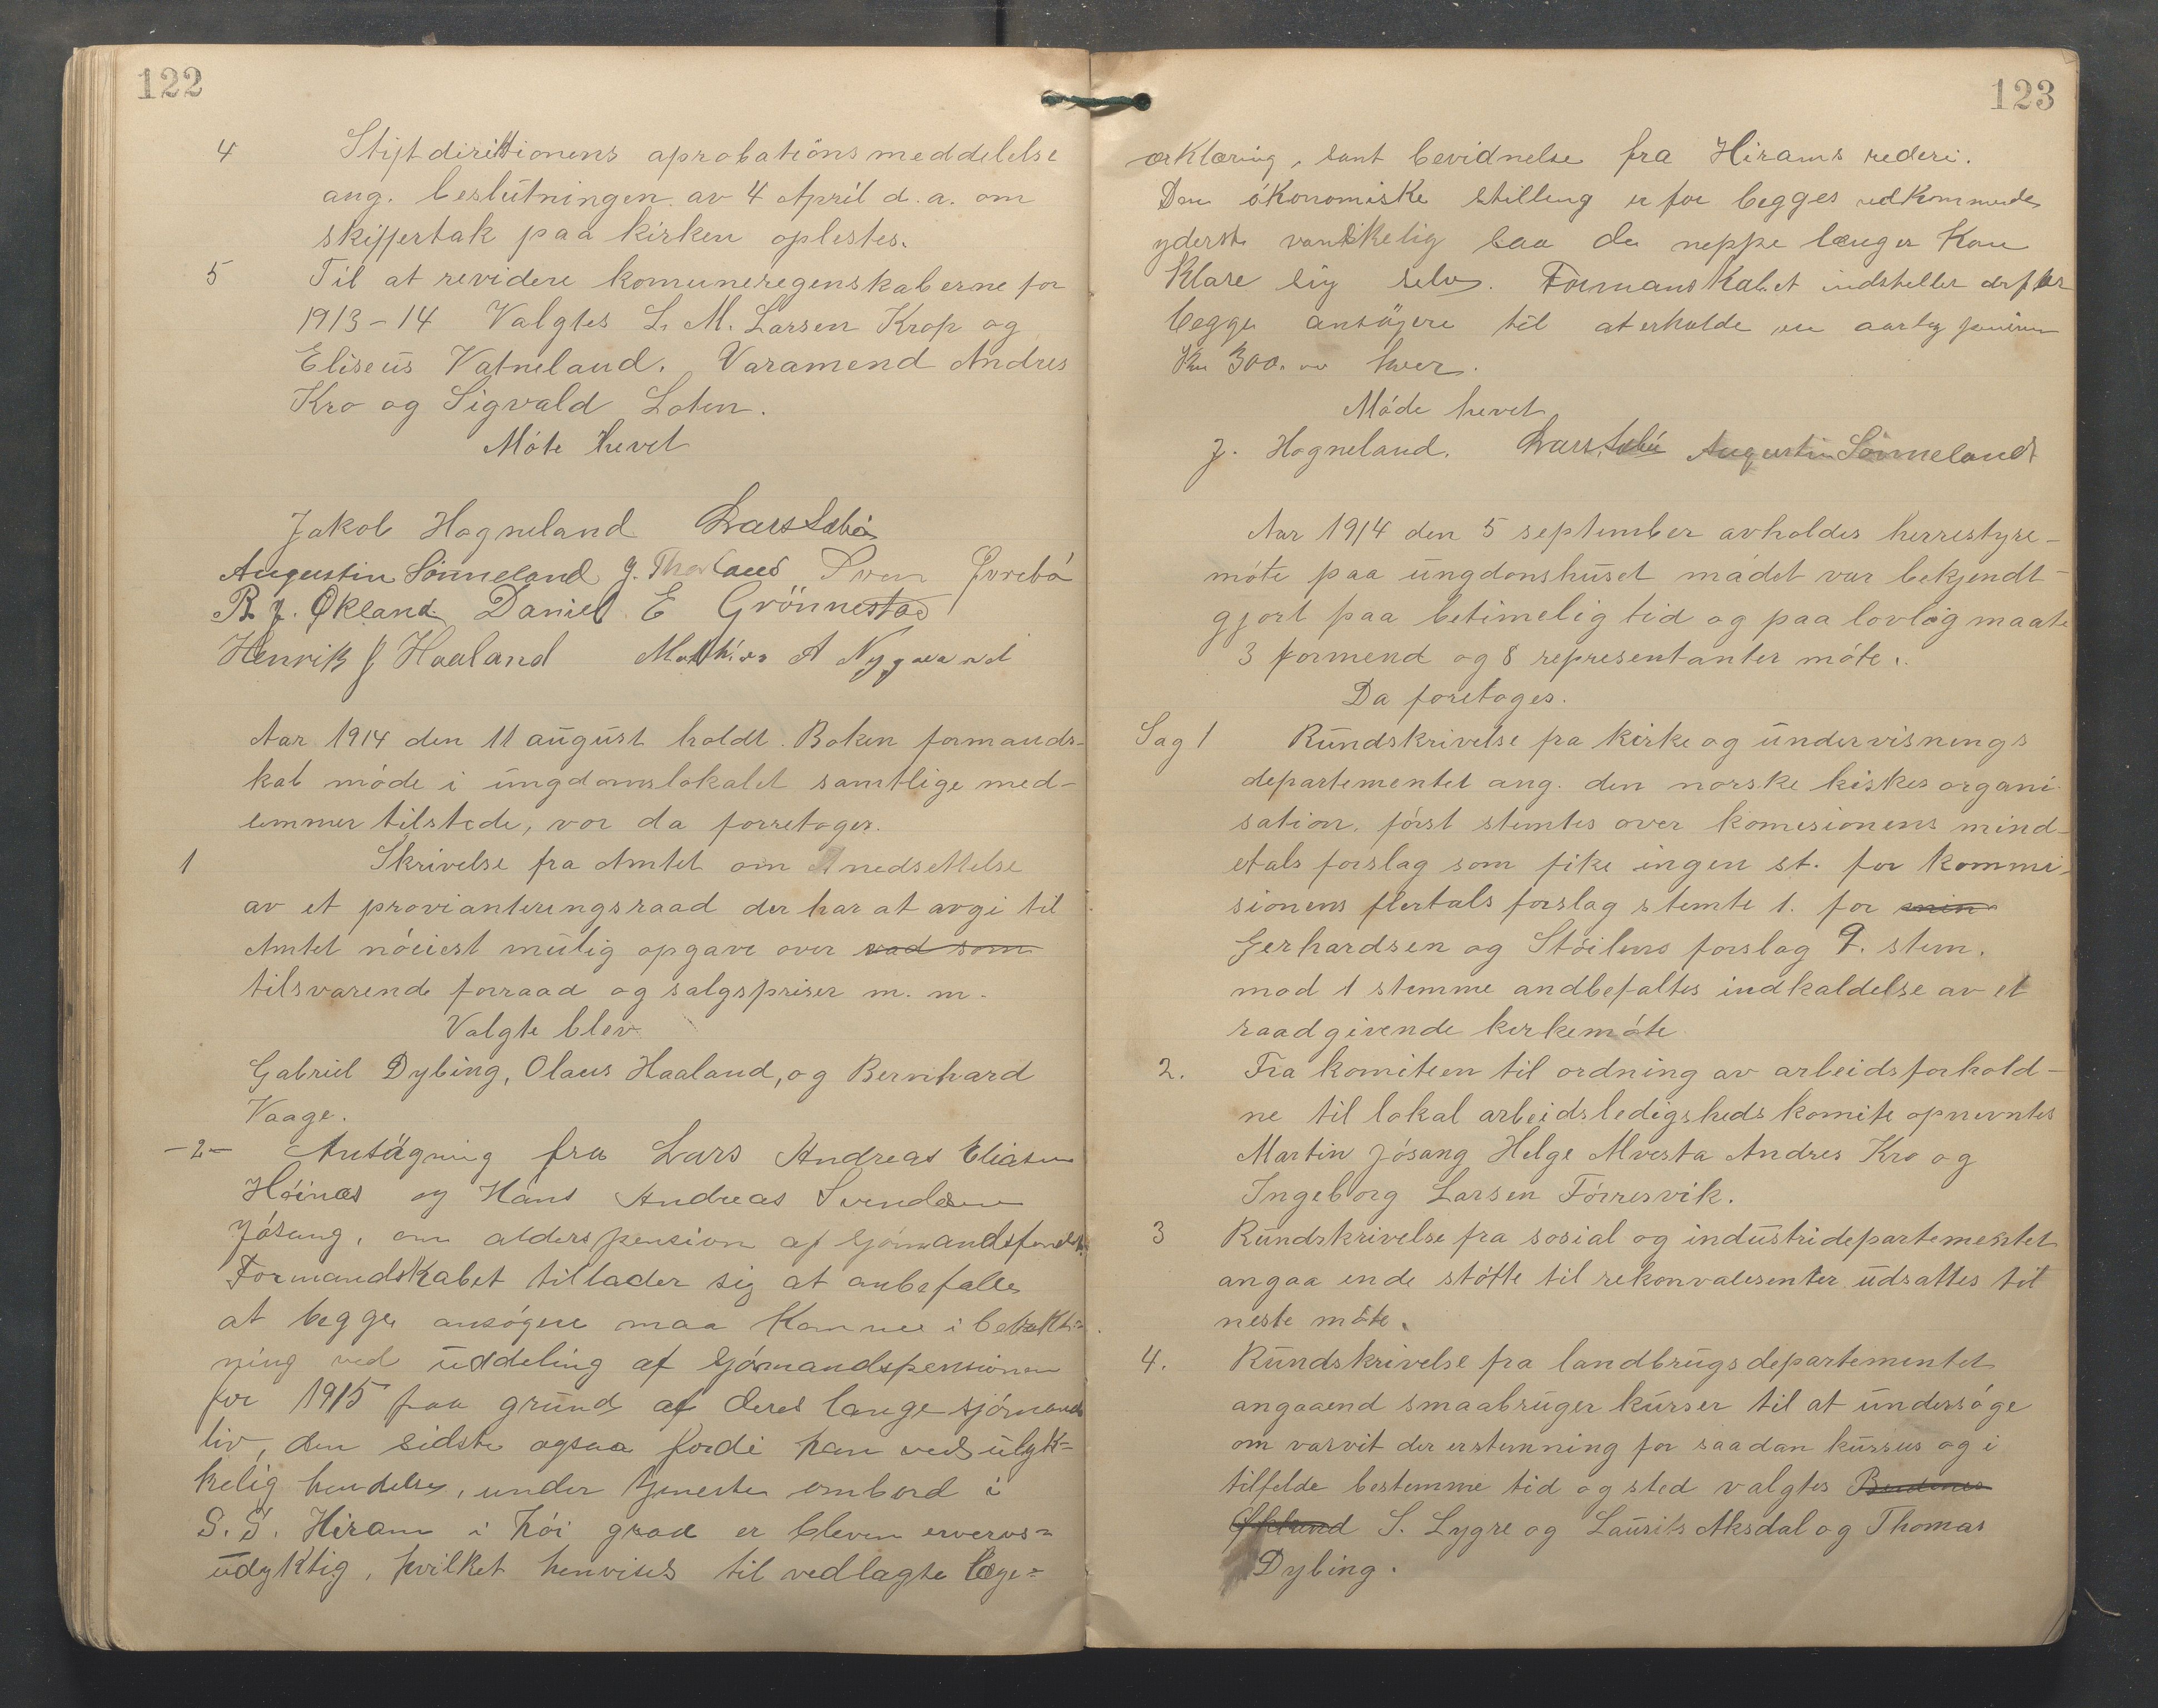 122
4 Stiftdirektionens aprobationsmeddelelse
ang. beslutningen av 4 April d. a. om
skiffertak paa kirken oplestes.
5 Til at revidere komuneregenskaberne for
1913-14 Valgtes L. M. Larsen Krop og
Eliseus Vatneland. Varamend Andres
Kro og Sigvald Loten.
Móte hevet
Jakob Hogneland Lars Sæbö
Augustin Sönneland J. Thorland Sven Övrebö
B. J. Økland Daniel E Grönnestad
Henrik J Haaland Mathias A Nygaard
Aar 1914 den 11 august holdt Boken formands-
kab móde i ungdomslokalet samtlige med-
lemmer tilstede, vor da forretoges.
1 Skrivelse fra Amtet om nedsettelse
av et provianteringsraad der har at avgi til
Amtet nóeiest mulig opgave over vad som
tilsvarende forraad og salgspriser m. m.
Valgte blev
Gabriel Dybing, Olaus Haaland, og Bernhard
Vaage.
-2- Ansögning fra Lars Andreas Eliasen
Höinæs og Hans Andreas Svendsen
Jósang, om alderspension af Sjómandsfondet.
Formandskabet tillader sig at anbefalle
at begge ansógere maa komme i betrakt-
ning ved uddeling af Sjómandspensionen
for 1915 paa grund af deres lange sjómands
liv, den sidste ogsaa fordi han ved ulyk=
kelig hendelse, under tjeneste ombord i
S. S. Hiram i hói grad er bleven ervervs=
udyktig, hvilket henvises til vedlagte læge=
123
ærklæring, samt bevidnelse fra Hirams rederi.
Den ókonomiske stilling er for begges vedkommende
yderst vanskelig saa de neppe længer kan
klare sig selv. Formanskabet indstiller derfor
begge ansögere til at erholde en aarlig pension
Kr 300.00 hver.
Móde hevet
J. Hogneland. Lars Sæbö Augustin Sönneland
Aar 1914 den 5 september avholdes herrestyre-
móte paa ungdomshuset mødet var bekjendt-
gjort paa betimelig tid og paa lovlig maate
3 formend og 8 representanter móte.
Da foretoges.
Sag 1 Rundskrivelse fra kirke og undervisnings
departementet ang. den norske kirkes organi-
sation. fórst stemtes over komesionens mind-
etals forslag som fike ingen st. for kommi-
sionens flertals forslag stemte 1. for min
Gerhardsen og Stóilens forslag 9. stem.
mod 1 stemme andbefaltes indkaldelse av et
raadgivende kirkemóte
2. Fra komiteen til ordning av arbeidsforhold-
ne til lokal arbeidsledigsheds komite opnevntes
Martin Jósang Helge Alvesta Andres Kro og
Ingeborg Larsen Tórresvik.
3 Rundskrivelse fra sosial og industridepartementet
angaaende stótte til rekonvalesenter udsattes til
neste móte.
4. Rundskrivelse fra landbrugsdepartementet
angaaend smaabruger kurser til at undersóge
om varvit der er stemning for saadan kursus og i
tilfelde bestemme tid og sted valgtes
S. Lygre og Laurits Aksdal og Thomas
Dybing.